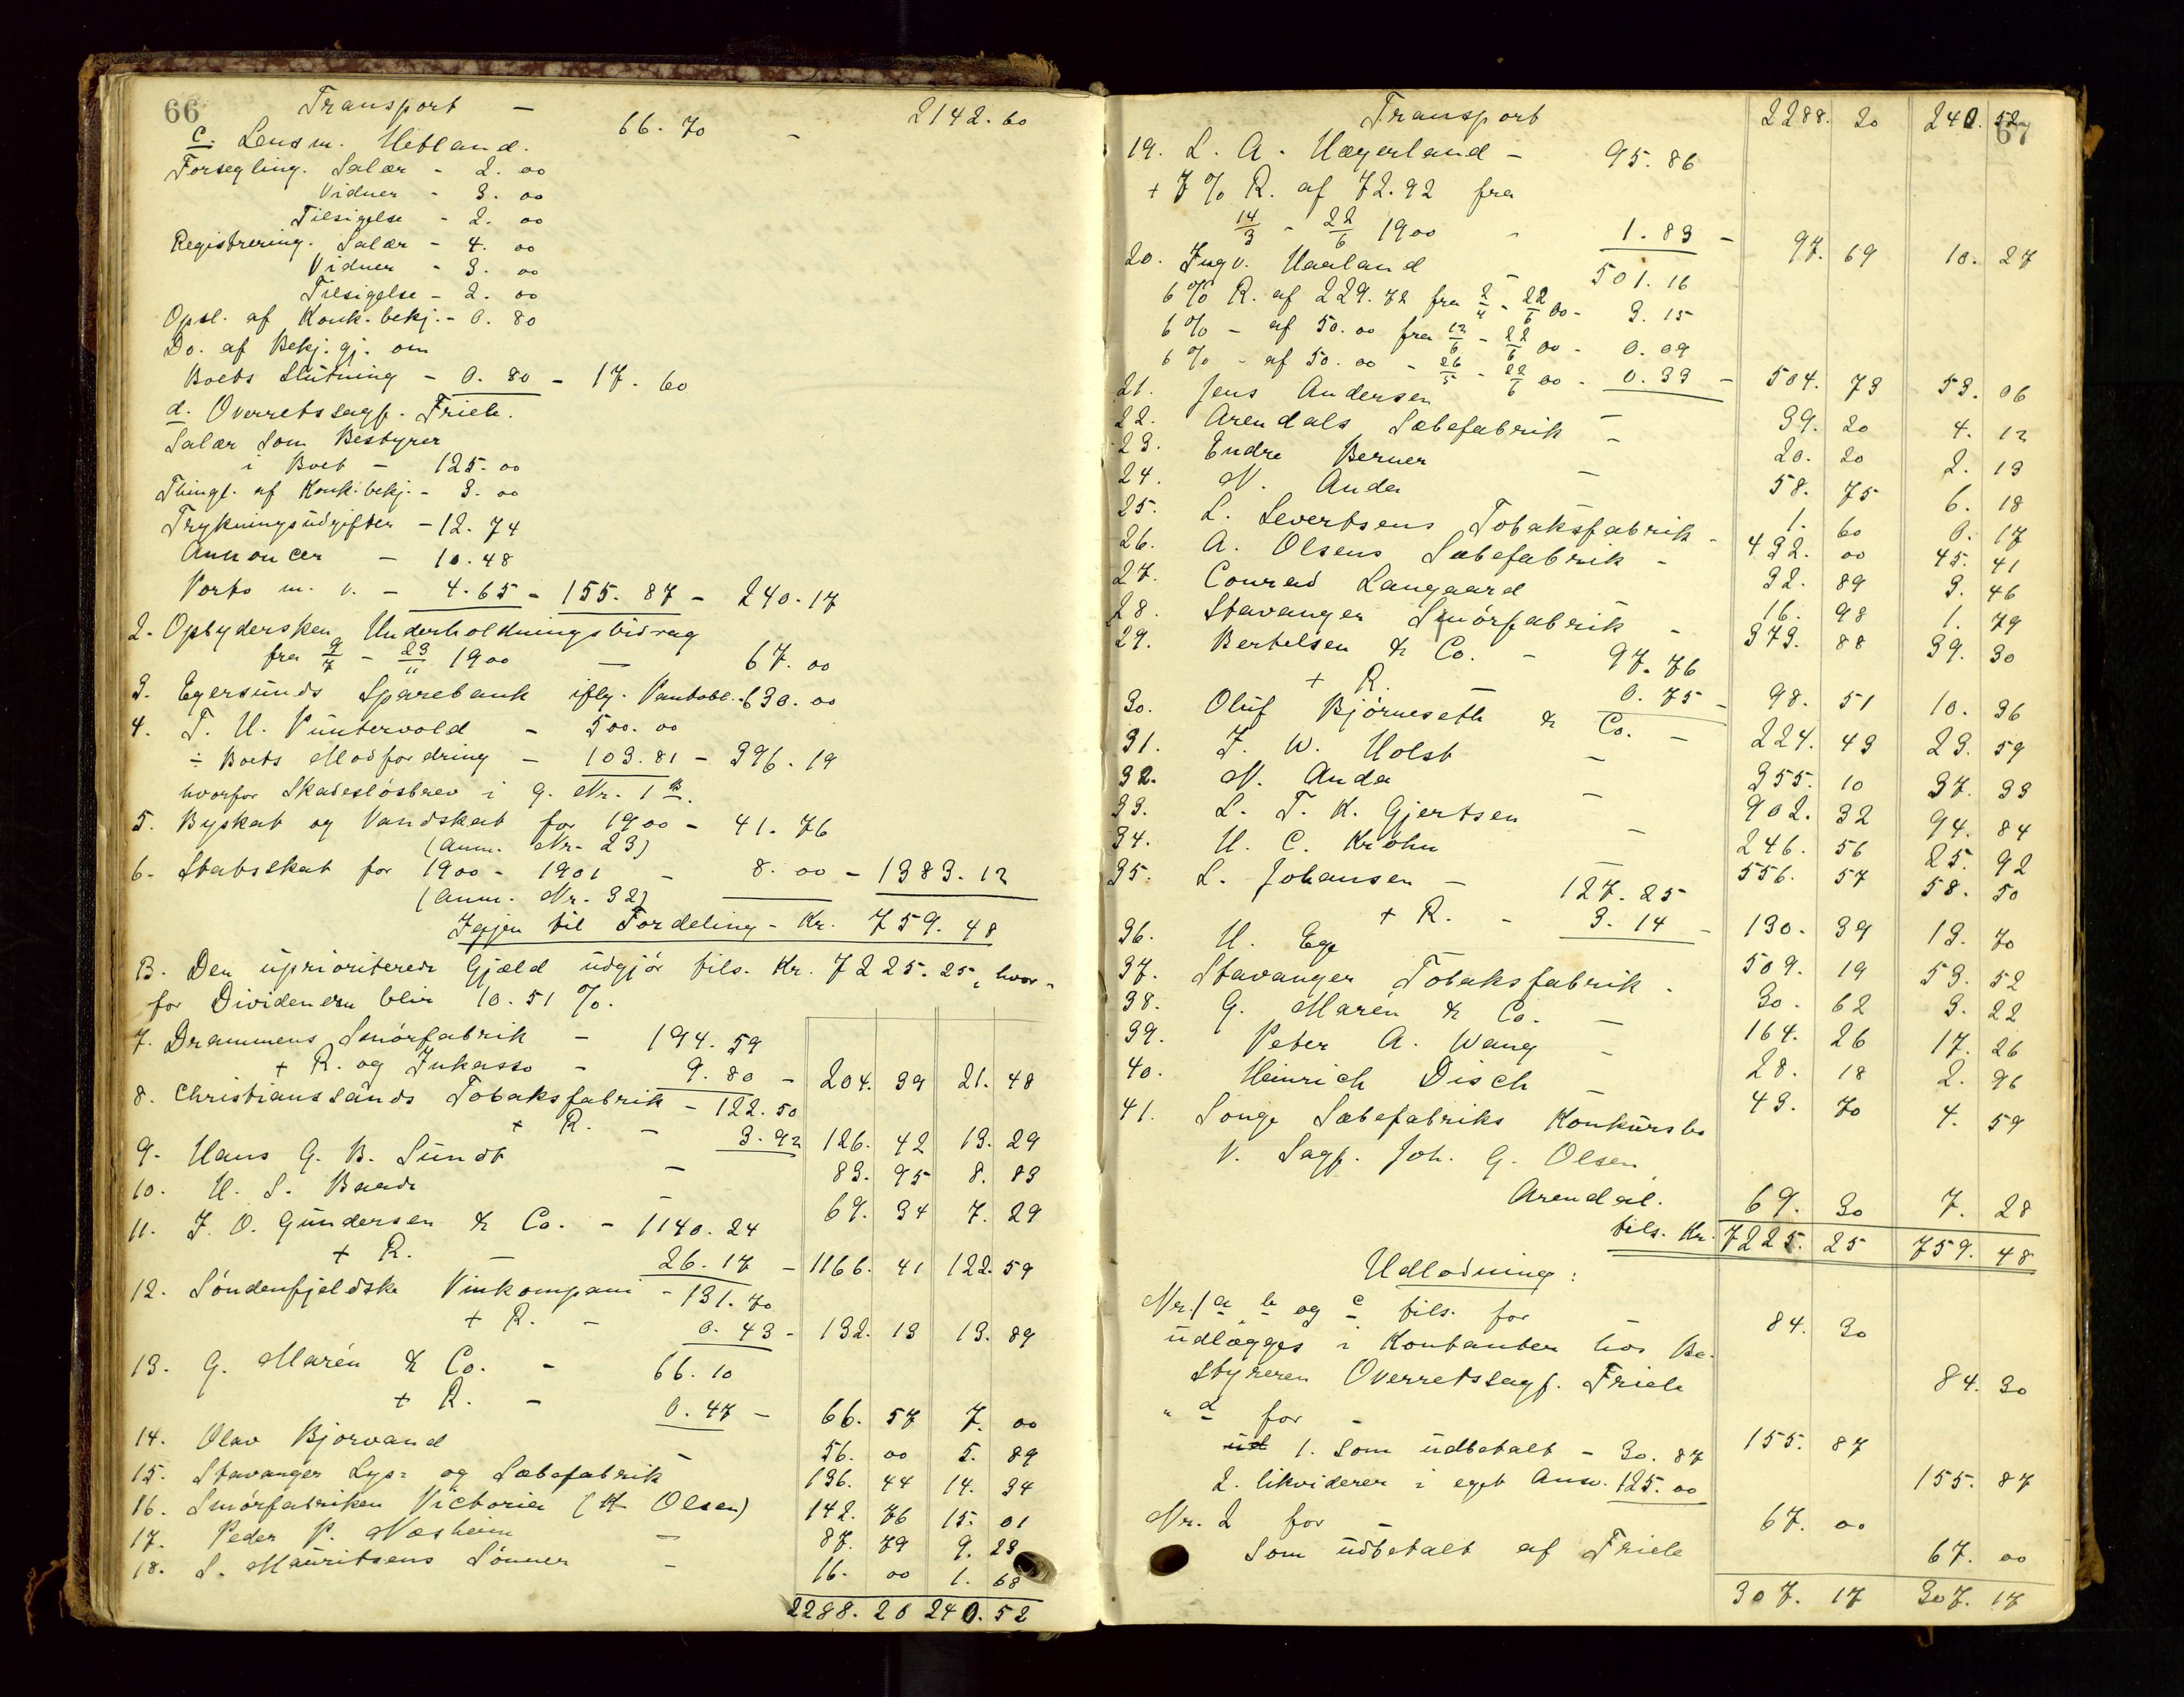 66
Transport - 66. 70 - 2142. 60
c. Lensm. Hetland.
Forsegling. Salær - 2. 00
Vidner - 3. 00
Tilsigelse - 2. 00
Registrering. Salær - 4. 00
Vidner - 3. 00
Tilsigelse - 2. 00
Opsl. af Konk. bekj. - 0. 80
Do. af Bekj. gj. om
Boets Slutning - 0. 80 - 17. 60
d. Overretssagf. Friele.
Salær som Bestyrer
i Boet - 125. 00
Thingl. af Konk. bekj. - 3. 00
Trykningsudgifter - 12. 74
Annoncer - 10. 48
Porto m. v. - 4. 65 - 155. 87 - 240. 17
2. Opbydersken Underholdningsbidrag
fra 9/7 - 23/11 1900 - 67. 00
3. Egersunds Sparebank iflg. Pantobl. - 630. 00
4. T. H. Puntervold - 500. 00
÷ Boets Modfordring - 103. 81 - 396. 19
hvorfor Skadesløsbrev i g. Nr. 1
5. Byskat og Vandskat for 1900 - 41. 76
(Anm. Nr. 23)
6. Statsskat for 1900 - 1901 - 8. 00 - 1383. 12
(Anm. Nr. 32)
Igjen til Fordeling - Kr. 759. 48
B. Den uprioriterede Gjæld udgjør tils. Kr. 7225. 25, hvor-
for Dividenden blir 10. 51 %.
7. Drammens Smørfabrik - 194. 59
+ R. og Inkasso - 9. 80 - 204. 39 21. 48
8. Christianssands Tobaksfabrik - 122. 50
+ R. - 3. 92 126. 42 13. 29
9. Hans G. B. Sundt - 83. 95 8. 83
10. H. S. Baade - 69. 34 7. 29
11. J. O. Gundersen & Co. - 1140. 24
+ R. - 26. 17 - 1166. 41 122. 59
12. Søndenfjeldske Vinkompani - 131. 70
+ R. - 0. 43 - 132. 13 13. 89
13. G. Marén & Co. - 66. 10
+ R. - 0. 47 - 66. 57 7. 00
14. Olav Bjorvand - 56. 00 5. 89
15. Stavanger Lys= og Sæbefabrik 136. 44 14. 34
16. Smørfabriken Victoria (H Olsen) 142. 76 15. 01
17. Peder P. Næsheim - 87. 79 9. 23
18. S. Mauritsens Sønner - 16. 00 1. 68
2288. 20 240. 52
67
Transport 2288. 20 240. 52
19. L. A. Hægerland - 95. 86
+ 7 % R. af 72. 92 fra
14/3 - 22/6 1900 - 1. 83 - 97. 69 10. 27
20. Ingv. Haaland - 501. 16
6 % R. af 229. 72 fra 2/4 - 22/6 00 - 3. 15
6 % - af 50. 00 fra 12/6 - 22/6 00 - 0. 09
6 % - af 50. 00 - 26/5 - 22/6 00 - 0. 33 - 504. 73 53. 06
21. Jens Andersen - 39. 20 4. 12
22. Arendals Sæbefabrik - 20. 20 2. 13
23. Endre Berner - 58. 75 6. 18
24. N. Anda 1. 60 0. 17
25. L. Levertsens Tobaksfabrik - 432. 00 45. 41
26. A. Olsens Sæbefabrik - 32. 89 3. 46
27. Conrad Langaard - 16. 98 1. 79
28. Stavanger Smørfabrik - 373. 88 39. 30
29. Bertelsen & Co. - 97. 76
+ R. - 0. 75 - 98. 51 10. 36
30. Oluf Bjørneseth & Co. - 224. 43 23. 59
31. J. W. Holst - 355. 10 37. 33
32. N. Anda - 902. 32 94. 84
33. L. T. K. Gjertsen - 246. 56 25. 92
34. H. C. Krohn - 556. 57 58. 50
35. L. Johansen - 127. 25
+ R. - 3. 14 - 130. 39 13. 70
36. H. Ege 509. 19 53. 52
37. Stavanger Tobaksfabrik - 30. 62 3. 22
38. G. Marén & Co. - 164. 26 17. 26
39. Peter A. Wang - 28. 18 2. 96
40. Heinrich Disch - 43. 70 4. 59
41. Songe Sæbefabriks Konkursbo
v. Sagf. Joh. G. Olsen
Arendal. 69. 30 7. 28
tils. Kr. 7225. 25 759. 48
Udlodning:
Nr. 1 a, b og c tils. for 84. 30
udlægges i Kontanter hos Be-
styreren Overretssagf. Friele 84. 30
" d for - 155. 87
ud 1. som udbetalt - 30. 87
2. likviderer i eget Ansv. 125. 00 155. 87
Nr. 2 for - 67. 00
som udbetalt af Friele 67. 00
307. 17 307. 17